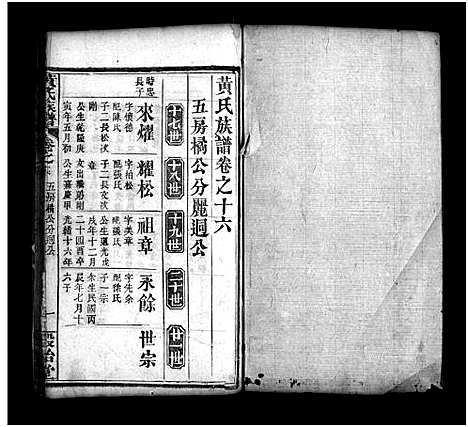 黃氏族譜卷之十六
五房橘公分麗迴公
十七世
十八世
十九世
二十世
廿一世
時忠
長子
來燿
字懷德
配陳氏
子二長松次
剛
公生乾隆庚
寅年五月初
耀松
字柏松
配張氏
子二長文次
章
文出繼弟剛
公生嘉慶甲
祖章
字美章
配張氏
公生道光戊
戌年十二月
二十四酉卒
光緒十六年
永餘
字先余
配徐氏
子一宗
公生民國丙
辰年七月十
六子
世宗
黃氏族譜
五房橘公分迴公
一